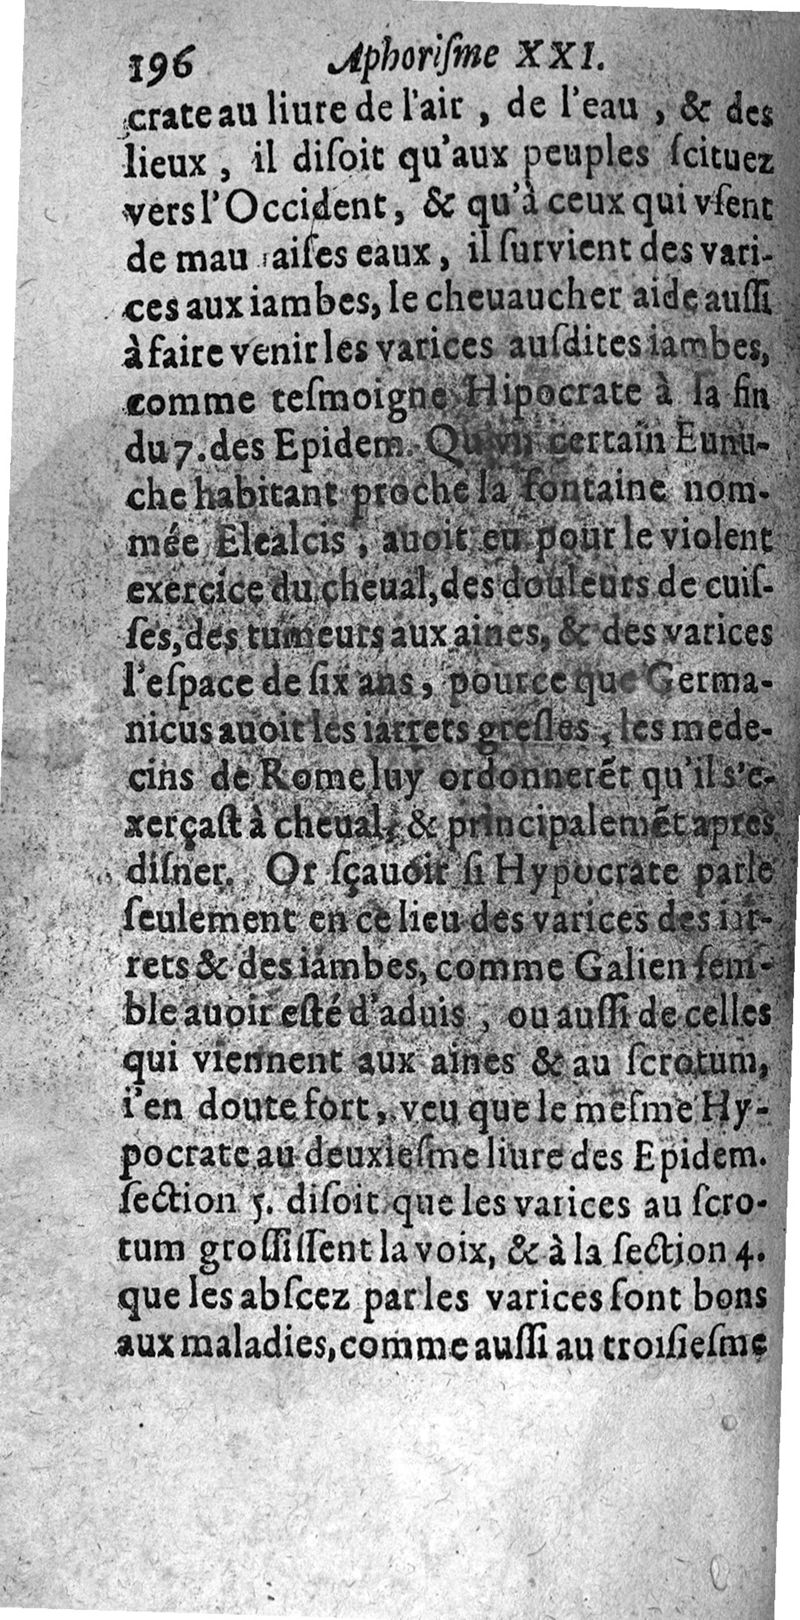 196 Aphoriſme XXI.
crate au liure de l'air , de l'eau , & des
lieux , il diſoit qu'aux peuples ſcituez
vers l'Occident, & qu'à ceux qui vſent
de mau aiſes eaux, il ſurvient des vari-
ces aux iambes, le cheuaucher aide auſſi
à faire venir les varices auſdites iambes,
comme teſmoigne Hipocrate à la fin
du 7. des Epidem. Qu'vn certain Eunu-
che habitant proche la fontaine nom-
mée Elealcis , auoit eu pour le violent
exercice du cheual, des douleurs de cuiſ-
ſes, des tumeurs aux aines, & des varices
l'eſpace de ſix ans, pource que Germa-
nicus auoit les iarrets greſles , les mede-
cins de Rome luy ordonnerẽt qu'il s'e-
xerçaſt à cheual, & principalemẽt apres
diſner. Or ſçauoir ſi Hypocrate parle
ſeulement en ce lieu des varices des iar-
rets & des iambes, comme Galien ſem-
ble auoir eſté d'aduis , ou auſſi de celles
qui viennent aux aines & au ſcrotum,
i'en doute fort, veu que le meſme Hy-
pocrate au deuxieſme liure des Epidem.
ſection 5. diſoit que les varices au ſcro-
tum groſſiſſent la voix, & à la ſection 4.
que les abſcez par les varices ſont bons
aux maladies, comme auſſi au troiſieſme